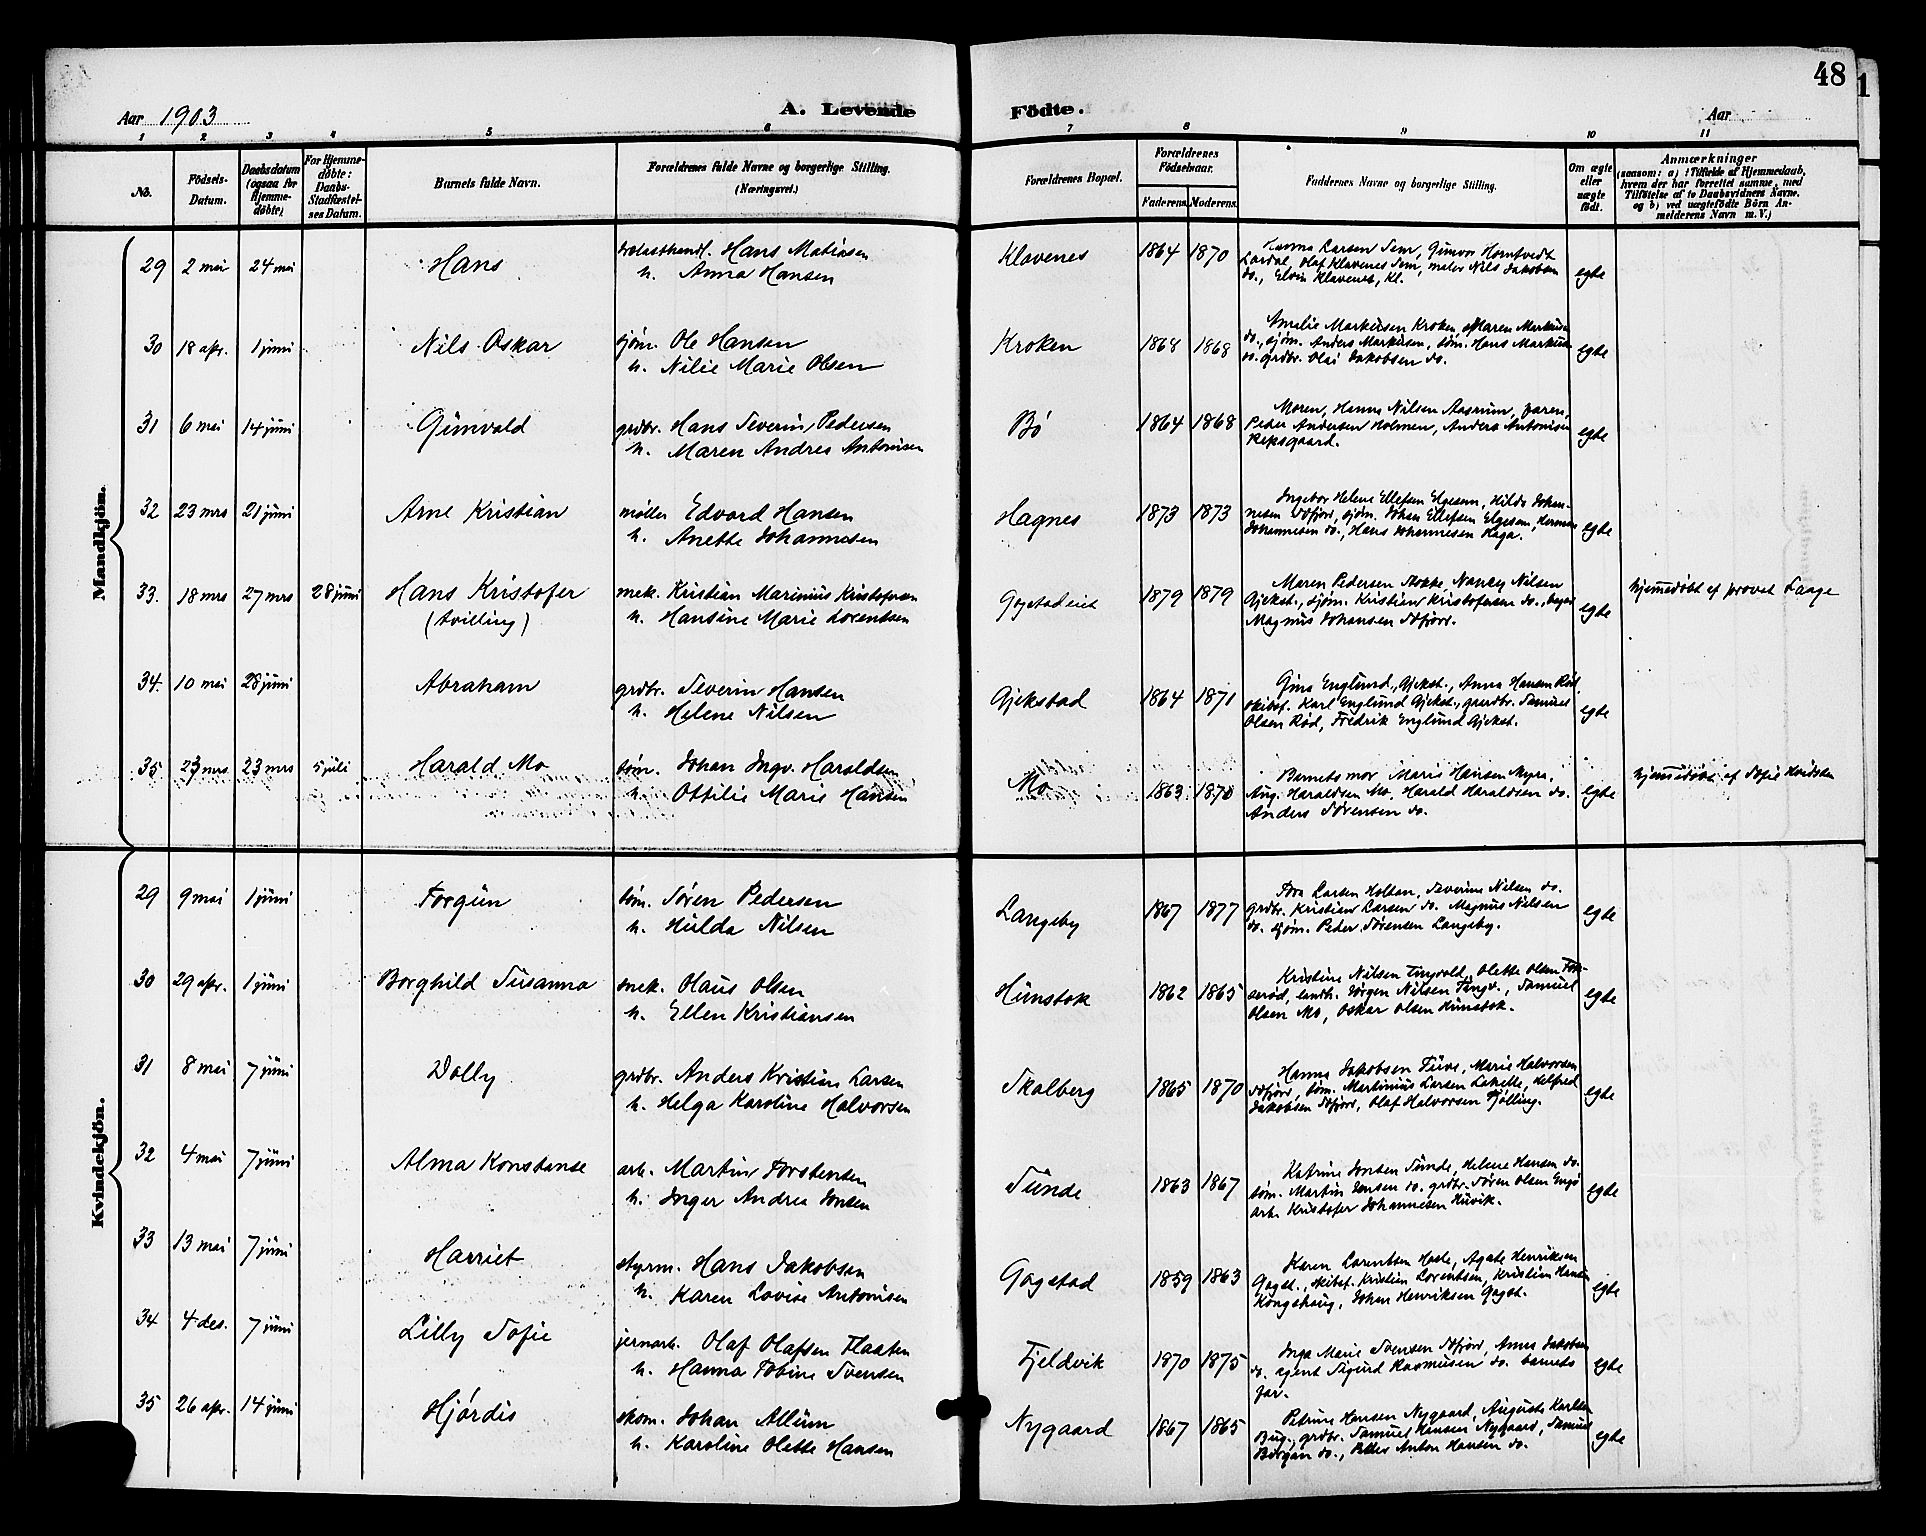 48
Aar 1903
A. Levende Födte.
Aar
1 2 3 4 5 6 7 8 9 10 11
No.
Födsels-Datum.
Daabsdatum (ogsaa for Hjemme-døbte)
For Hjemme-døbte: Daabs-Stadfæstel-ses Datum.
Barnets fulde Navn.
Forældrenes fulde Navne og borgerlige Stilling. (Næringsvei.)
Forældrenes Bopæl.
Forældrenes Födselsaar.
Faderens. Moderens.
Faddernes Navne og borgerlige Stilling.
Om ægte eller uægte født.
Anmærkninger
(saasom: a) i Tilfælde af Hjemmedaab, hvem der har forrettet samme, med Tilføielse af to Daabsvidners Navne. og b) ved uægtefødte Børn An-melderens Navn m. V.)
Mandkjön.
29 2 mai 24 mai Hans Hans Matiasen
h. Anna Hansen
Klavenes 1864 1870 Larsen Sem, Gunvor Homtvedt
Lardal, Olaf Klavenes Sem, maler Nils Jakobsen
do., Elvin Klavenes, Kl.
egte
30 18 apr. 1 juni Nils Oskar sjøm. Ole Hansen
h. Nilie Marie Olsen
Kroken 1868 1868 Amalie Markusen Kroken, Maren Markusen
do., sjøm. Anders Markusen, tøm. Hans Markusen
do. grdbr. Olai Jakobsen do.
egte
31 6 mai 14 juni Gunvald grdbr. Hans Severin Pedersen
h. Maren Andrea Antonisen
Bö 1864 1868 Moren, Hanna Nilsen Aasrum, faren,
Peder Andersen Holmen, Anders Antonisen
Ræpsgaard.
egte
32 23 mrs 21 juni Arne Kristian møller Edvard Hansen
h. Anette Johannesen
Hagnes 1873 1873 Ingebor Helene Ellefsen Elgesem, Hilda Johan-
nesen Sdfjord, sjøm. Johan Ellefsen Elgesem, Herman
Johannesen do., Hans Johannesen Haga.
egte
33. 18 mrs 27 mrs 28 juni Hans Kristofer
(tvilling)
mek. Kristian Marinius Kristofersen
h. Hansine Marie Lorentsen
Gogstadeiet 1879 1879 Maren Pedersen Stokke, Nancy Nilsen
Gjekst., sjøm. Kristian Kristofersen do., bager
Magnus Johansen Sdfjord.
egte hjemmedöbt af provst Faage
34. 10 mai 28 juni Abraham grdbr. Severin Hansen
h. Helene Nilsen
Gjekstad 1864 1871 Gina Englund, Gjekst., Anna Hansen Rød
skibsf. Karl Englund Gjekst., grdbr. Samuel
Olsen Rød, Fredrik Englund Gjekst.
egte
35 23 mrs 23 mrs 5 juli Harald Mo tøm. Johan Ingv. Haraldsen
h. Ottilie Marie Hansen
Mo 1863 1870 Barnets mor, Marie Hansen Myra,
Aug. Haraldsen Mo, Harald Haraldsen do.
Anders Sørensen do.
egte hjemmedöbt af Sofie Hvidsten
Kvindekjön.
29 9 mai 1 juni Torgun tøm. Søren Pedersen
h. Hulda Nilsen
Langeby 1867 1877 Tora Larsen Holtan, Severine Nilsen do.
grdbr. Kristian Larsen do. Magnus Nilsen
do. sjøm. Peder Sørensen Langeby.
egte
30 29 apr. 1 juni Borghild Susanna mek. Olaus Olsen
h. Ellen Kristiansen
Hunstok 1862 1865 Kristine Nilsen Tingvold, Olette Olsen Fok-
serød, landh. Jørgen Nilsen Tingv., Samuel
Olsen Mo, Oskar Olsen Hunstok.
egte
31 8 mai 7 juni Dolly grdbr. Anders Kristian Larsen
h. Helga Karoline Halvorsen
Skalberg 1865 1870 Hanna Jakobsen Tuve, Marie Halvorsen
Sdfjord, tøm. Martinius Larsen Lakelle, Helfred
Jakobsen Sdfjord, Olaf Halvorsen Tjølling.
egte
32 4 mai 7 juni Alma Konstanse arb. Martin Torstensen
h. Inger Andrea Jonsen
Sunde 1863 1867 Katrine Jonsen Sunde, Helene Hansen do.
tøm. Martin Jonsen do. grdbr. Søren Olsen Engø
arb. Kristofer Johannesen Huvik.
egte
33 13 mai 7 juni Harriet styrm. Hans Jakobsen
h. Karen Lovise Antonisen
Gogstad 1859 1863 Karen Lorentsen Hasle, Agate Henriksen
Gogst., skibsf. Kristian Lorentsen, Kristian Hansen
Kongshaug, Johan Henriksen Gogst.
egte
34 4 des. 7 juni Lilly Sofie jernarb. Olaf Olafsen Flaaten
h. Hanna Tobine Svensen
Fjeldvik 1870 1875 Inga Marie Svensen Sdfjord, Anna Jakobsen
do. agent Sigurd Rasmussen do. barnets
far.
egte
35 26 apr. 14 juni Hjørdis skom. Johan Allum
h. Karoline Olette Hansen
Nygaard 1867 1865 Petrine Hansen Nygaard, Augusta Karlsen
Bug., grdbr. Samuel Hansen Nygaard, Samuel
Børgan do., Petter Anton Hansen do.
egte